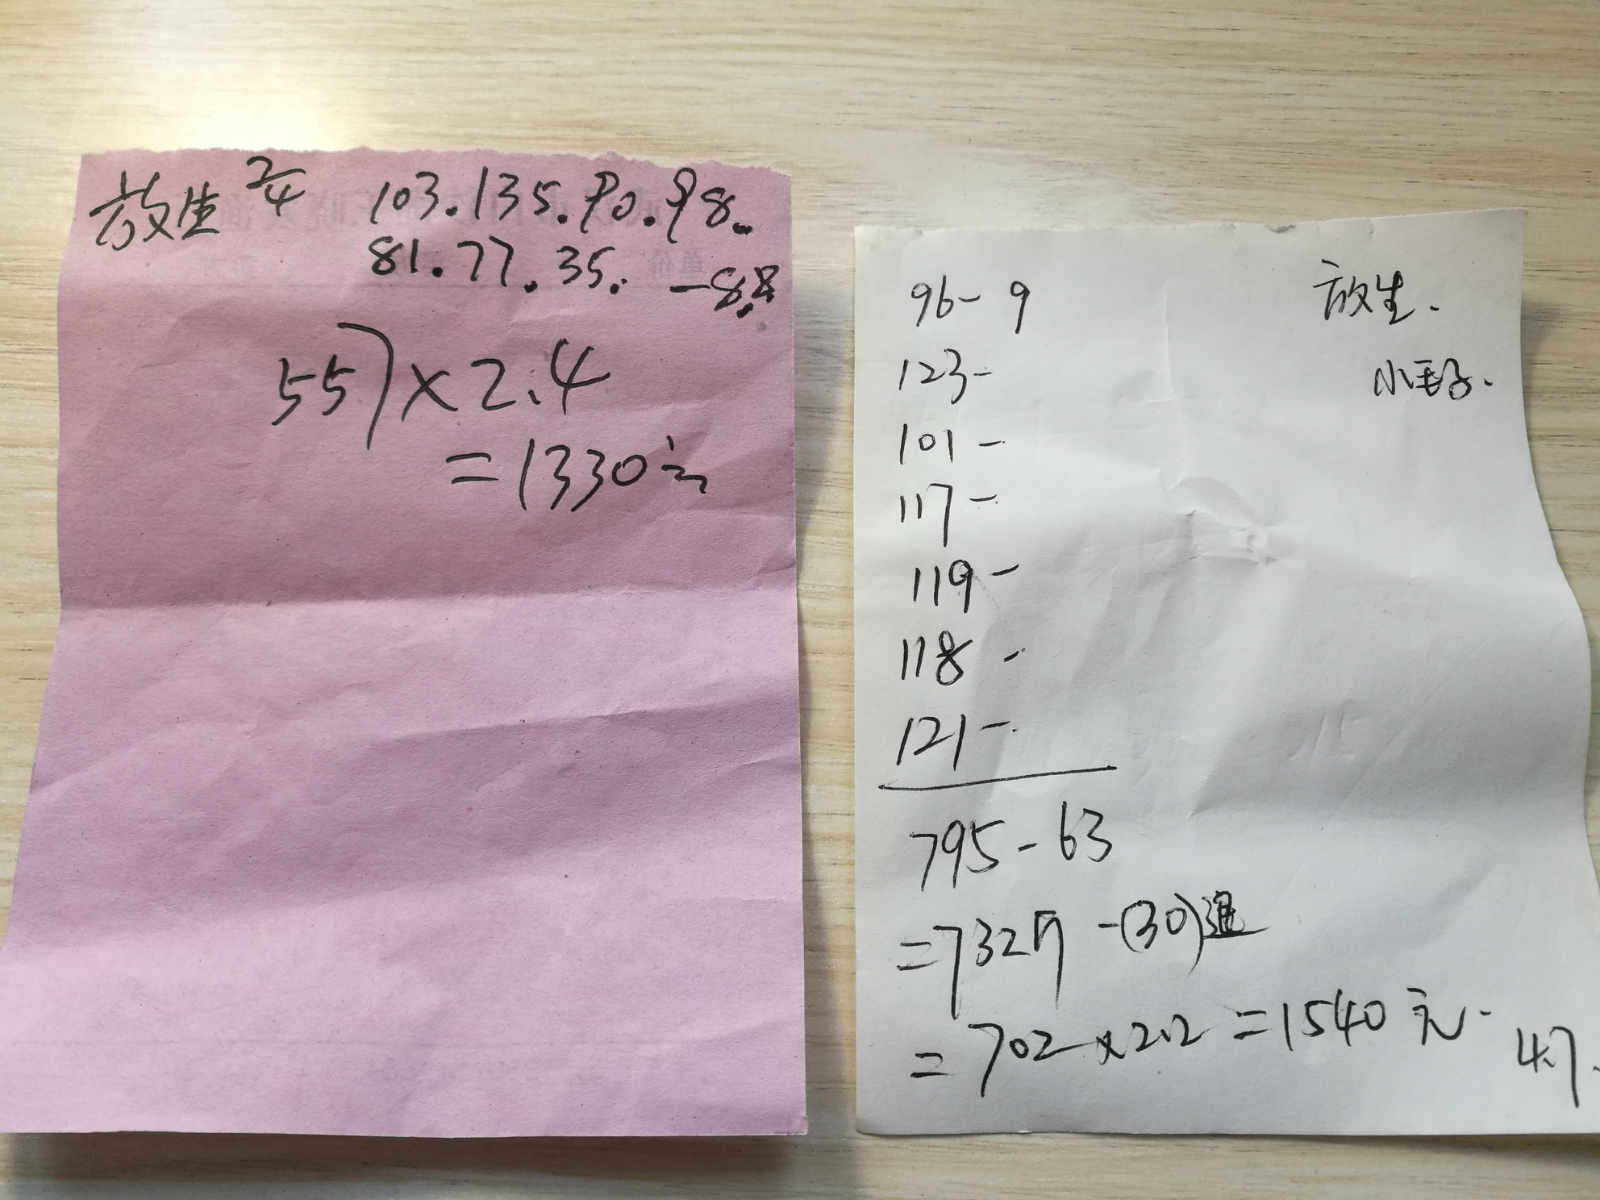 放生 2/4 103.135.90.98.
81.77.35. -8.8
557×2.4
=1330元
放生.
小毛子.
96-9
123-
101-
117-
119-
118-
121-
795-63
=732斤-(30)退
=702×2.2=1540元.
4.7.